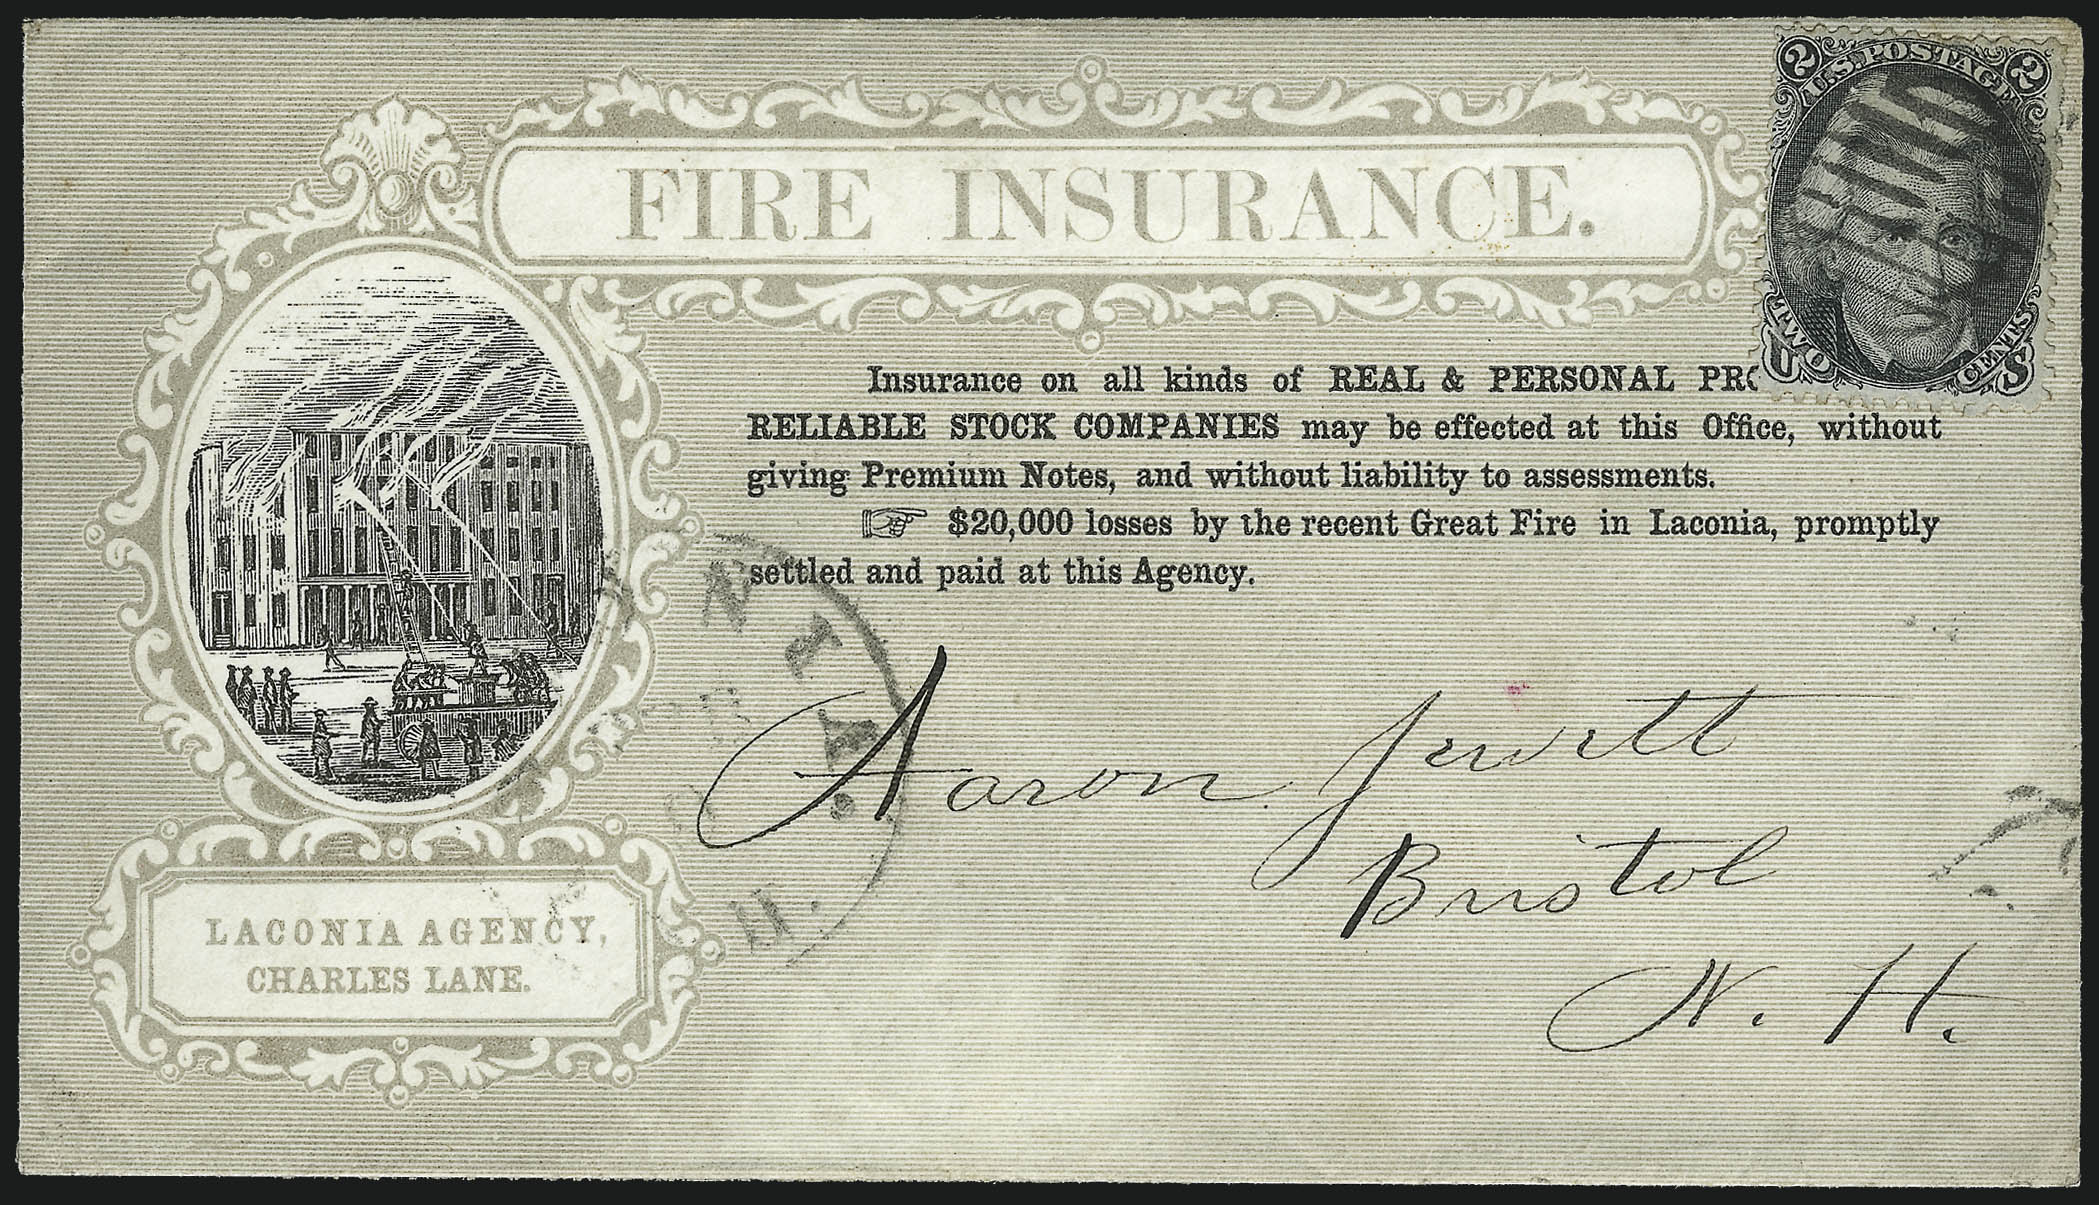 2 U.S. POSTAGE 2
FIRE INSURANCE.
TWO CENTS
U S
Insurance on all kinds of REAL & PERSONAL
RELIABLE STOCK COMPANIES may be effected at this Office, without
giving Premium Notes, and without liability to assessments.
☞ $20,000 losses by the recent Great Fire in Laconia, promptly
settled and paid at this Agency.
NIA.
H.
Aaron Jewett
Bristol
N. H.
LACONIA AGENCY,
CHARLES LANE.